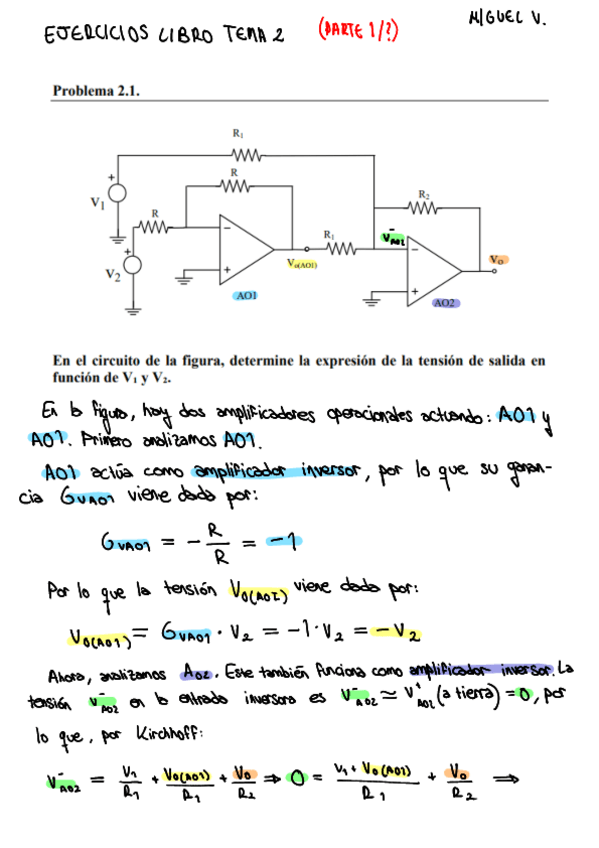 EJERCICIOS LIBRO TEMA 2 (PARTE 1/?) MIGUEL V.
Problema 2.1.
R1
R
R2
V1
R
R1
V⁻AO2
Vo
V2
Vo(AO1)
AO1
AO2
En el circuito de la figura, determine la expresión de la tensión de salida en
función de V1 y V2.
En la figura, hay dos amplificadores operacionales actuando: AO1 y
AO1. Primero analizamos AO1.
AO1 actúa como amplificador inversor, por lo que su ganan-
cia GVAO1 viene dada por:
GVAO1 = - R/R = -1
Por lo que la tensión Vo(AO1) viene dada por:
Vo(AO1) = GVAO1 · V2 = -1 · V2 = -V2
Ahora, analizamos AO2. Este también funciona como amplificador inversor. La
tensión V⁻AO2 en la entrada inversora es V⁻AO2 ≃ V⁺AO2 (a tierra) = 0, por
lo que, por Kirchhoff:
V⁻AO2 = V1/R1 + Vo(AO1)/R1 + Vo/R2 ⇒ 0 = V1 + Vo(AO1)/R1 + Vo/R2 ⇒